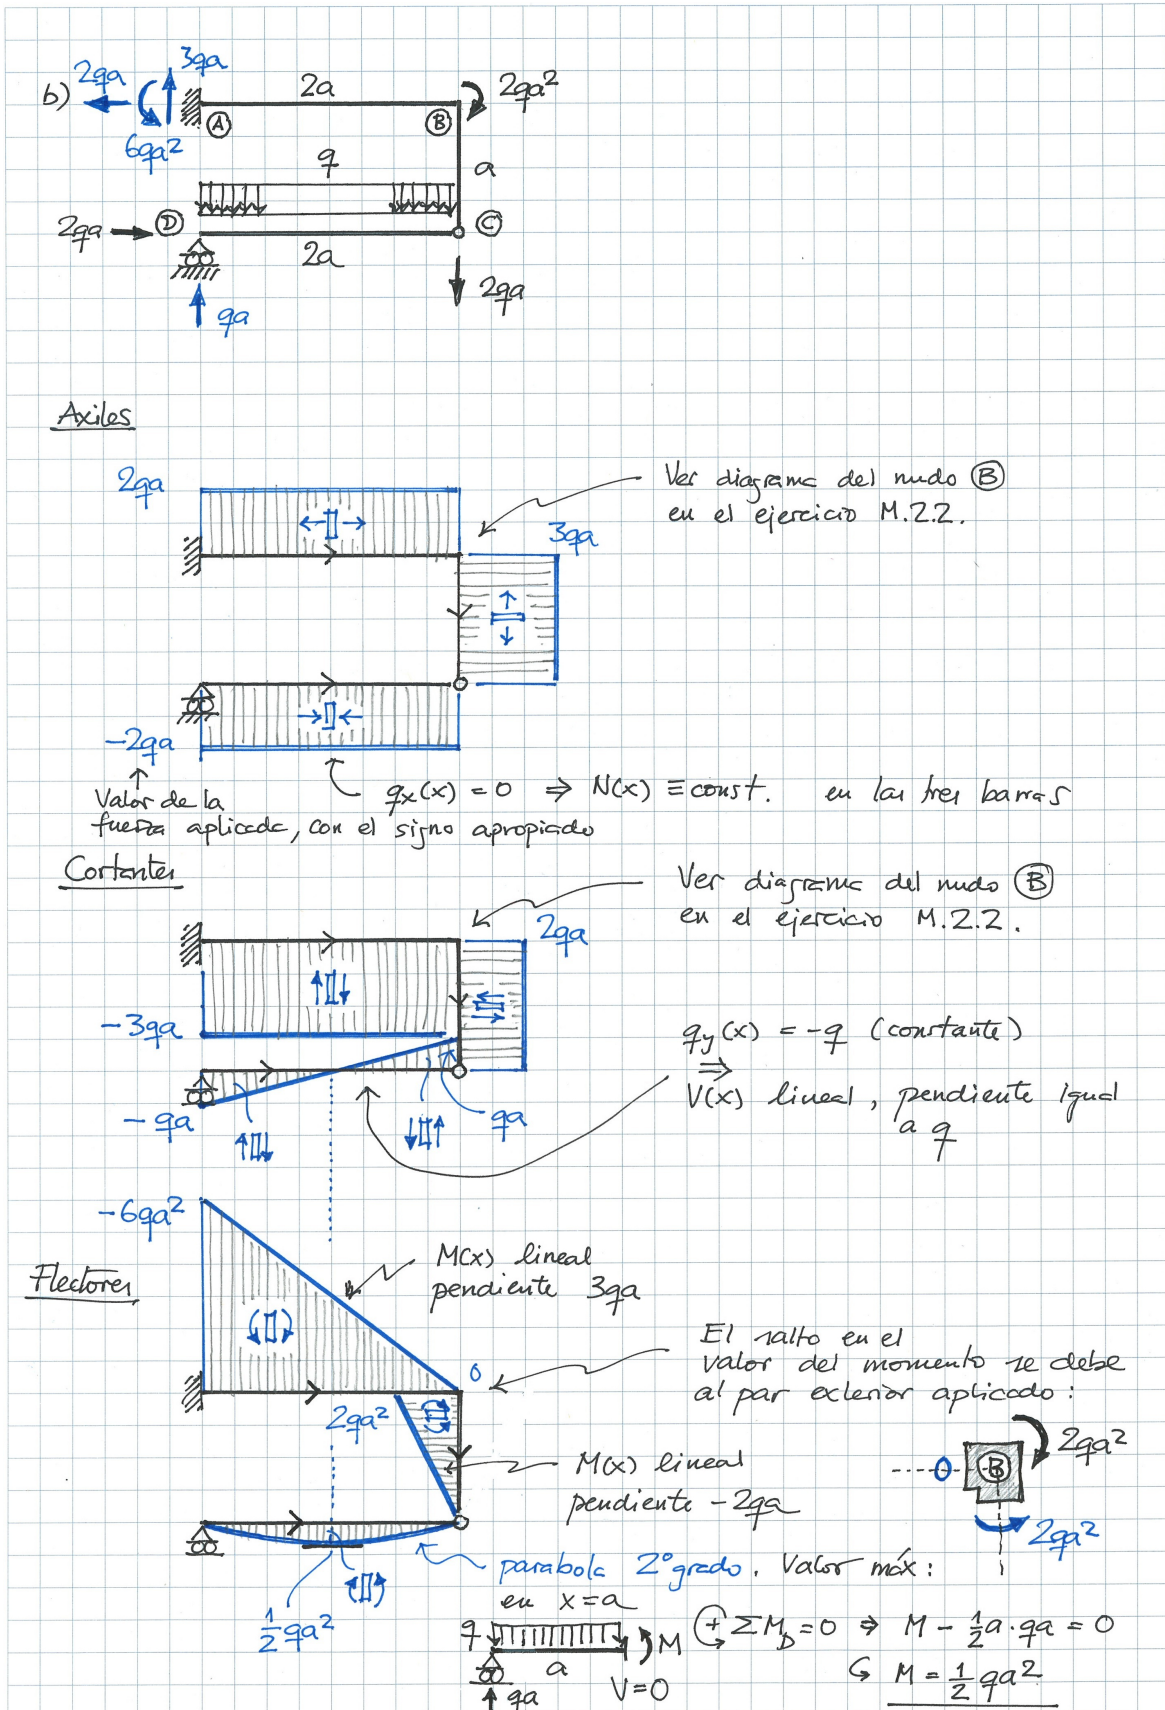 b)
2qa
3qa
6qa²
2a
2qa²
A
B
q
a
2qa
D
C
2a
2qa
qa
Axiles
2qa
Ver diagrama del nudo B
en el ejercicio M.2.2.
3qa
-2qa
Valor de la
fuerza aplicada, con el signo apropiado
qx(x) = 0 ⇒ N(x) ≡ const. en las tres barras
Cortantes
Ver diagrama del nudo B
en el ejercicio M.2.2.
2qa
-3qa
qy(x) = -q (constante)
⇒
V(x) lineal, pendiente igual
a q
-qa
qa
-6qa²
Flectores
M(x) lineal
pendiente 3qa
0
El salto en el
valor del momento se debe
al par exterior aplicado:
2qa²
M(x) lineal
pendiente -2qa
0
B
2qa²
2qa²
½qa²
parabola 2º grado. Valor máx:
en x=a
q
M
a
V=0
qa
+ ΣM_D=0 ⇒ M - ½a·qa = 0
↳ M = ½qa²